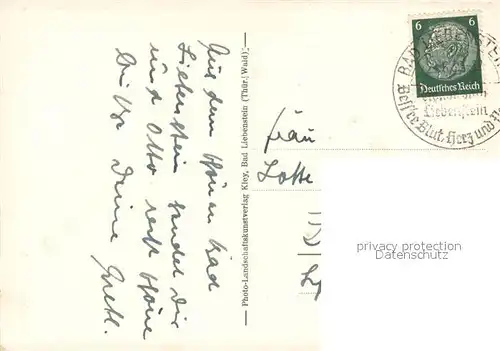 Aus dem schönen Bad
Liebenstein sendet Dir
und Otto recht schöne
Grüße Deine Gretl.
— Photo-Landschaftskunstverlag Kley, Bad Liebenstein (Thür. Wald) —
6 6
Deutsches Reich
BAD LIEBENSTEIN
Liebenstein
Bessere Blut, Herz und
Frau
Lotte
privacy protection
Datenschutz